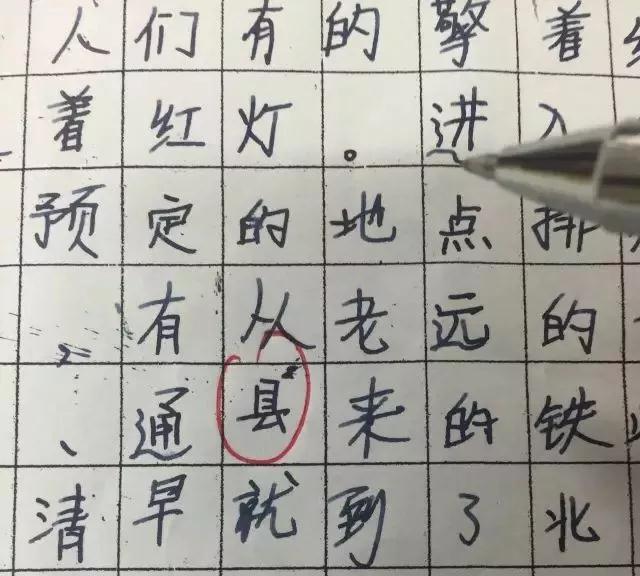 人们有的擎着
着红灯。进入
预定的地点排
，有从老远的
、通县来的铁
清早就到了北